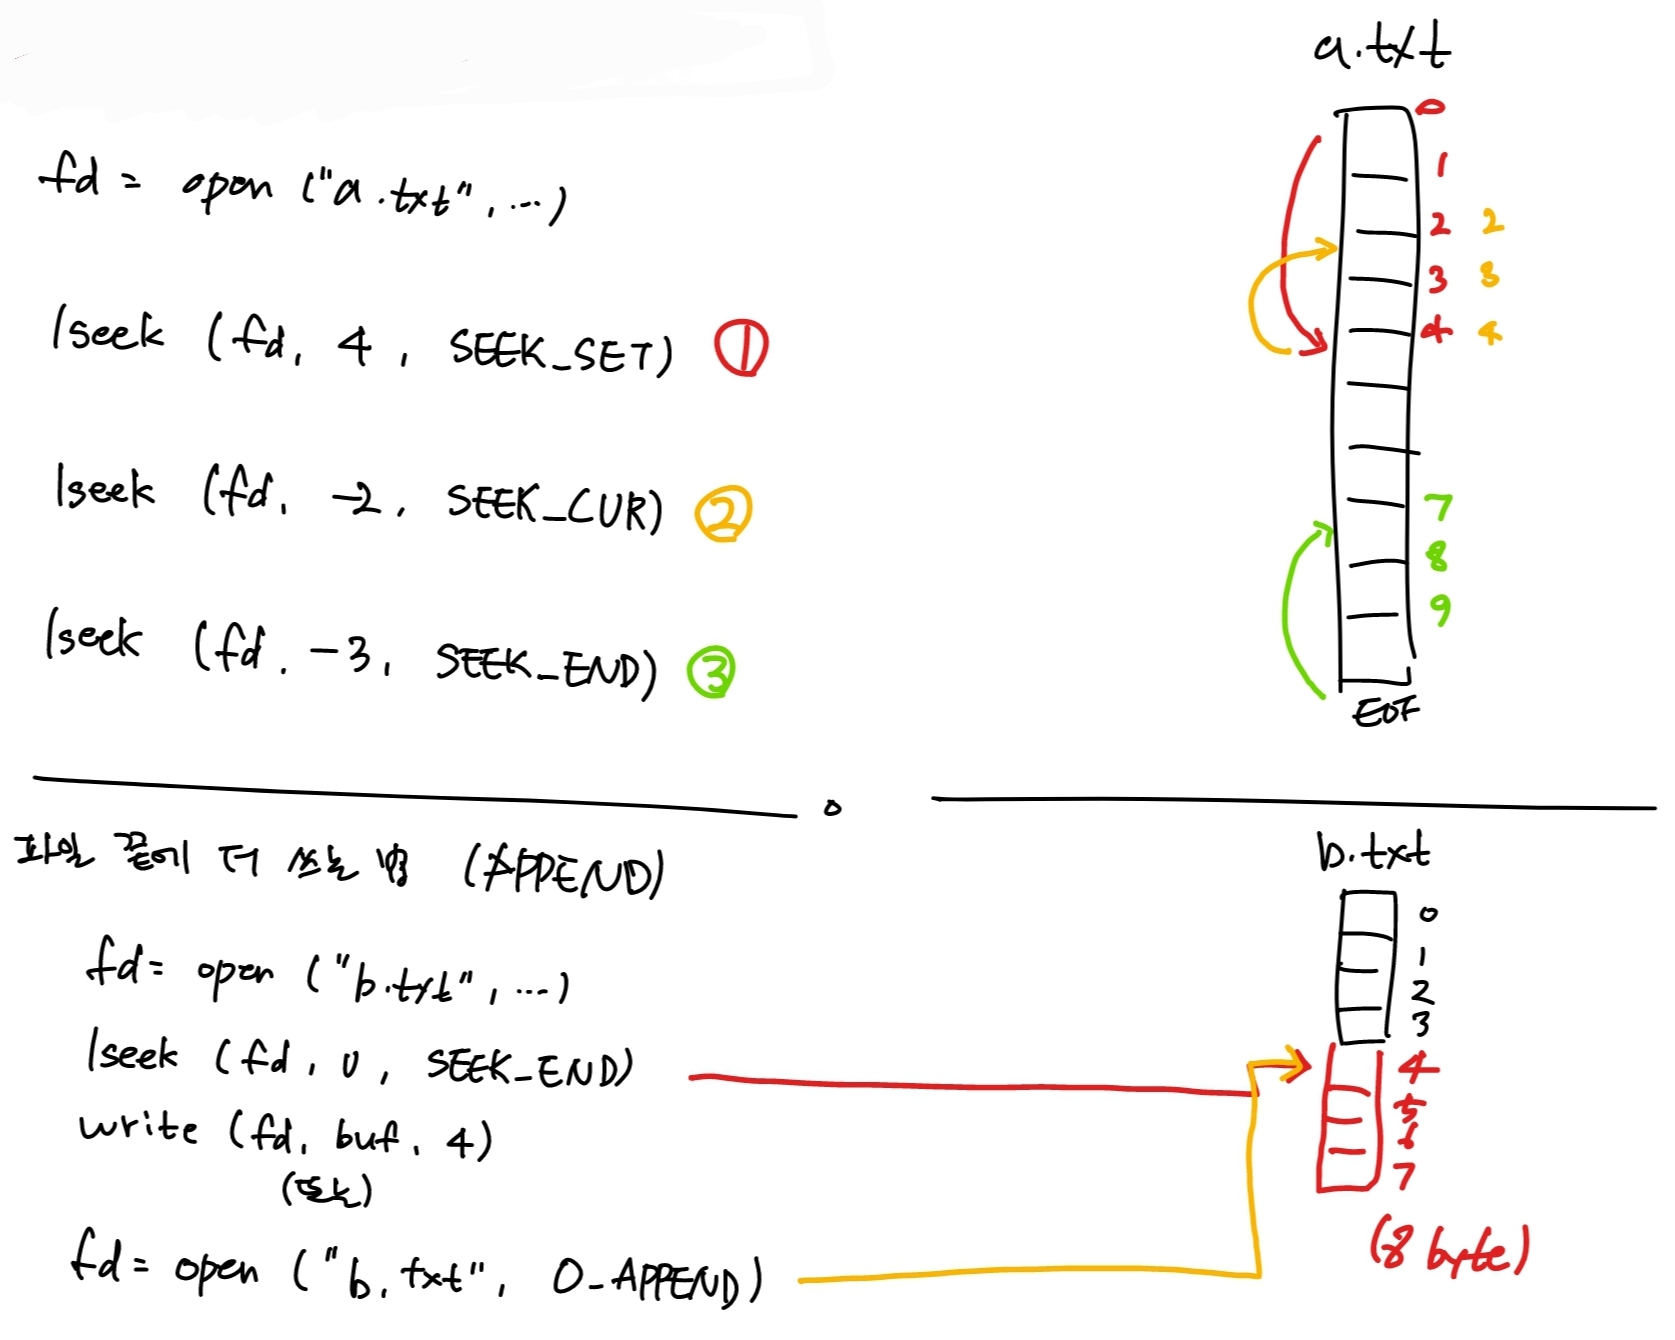 fd = open ("a.txt", ...)
lseek (fd, 4, SEEK_SET) ①
lseek (fd, -2, SEEK_CUR) ②
lseek (fd, -3, SEEK_END) ③
a.txt
0
1
2 2
3 3
4 4
7
8
9
EOF
파일 끝에 더 쓰는 법 (APPEND)
fd = open ("b.txt", ...)
lseek (fd, 0, SEEK_END)
write (fd, buf, 4)
(또는)
fd = open ("b.txt", O_APPEND)
b.txt
0
1
2
3
4
5
6
7
(8 byte)